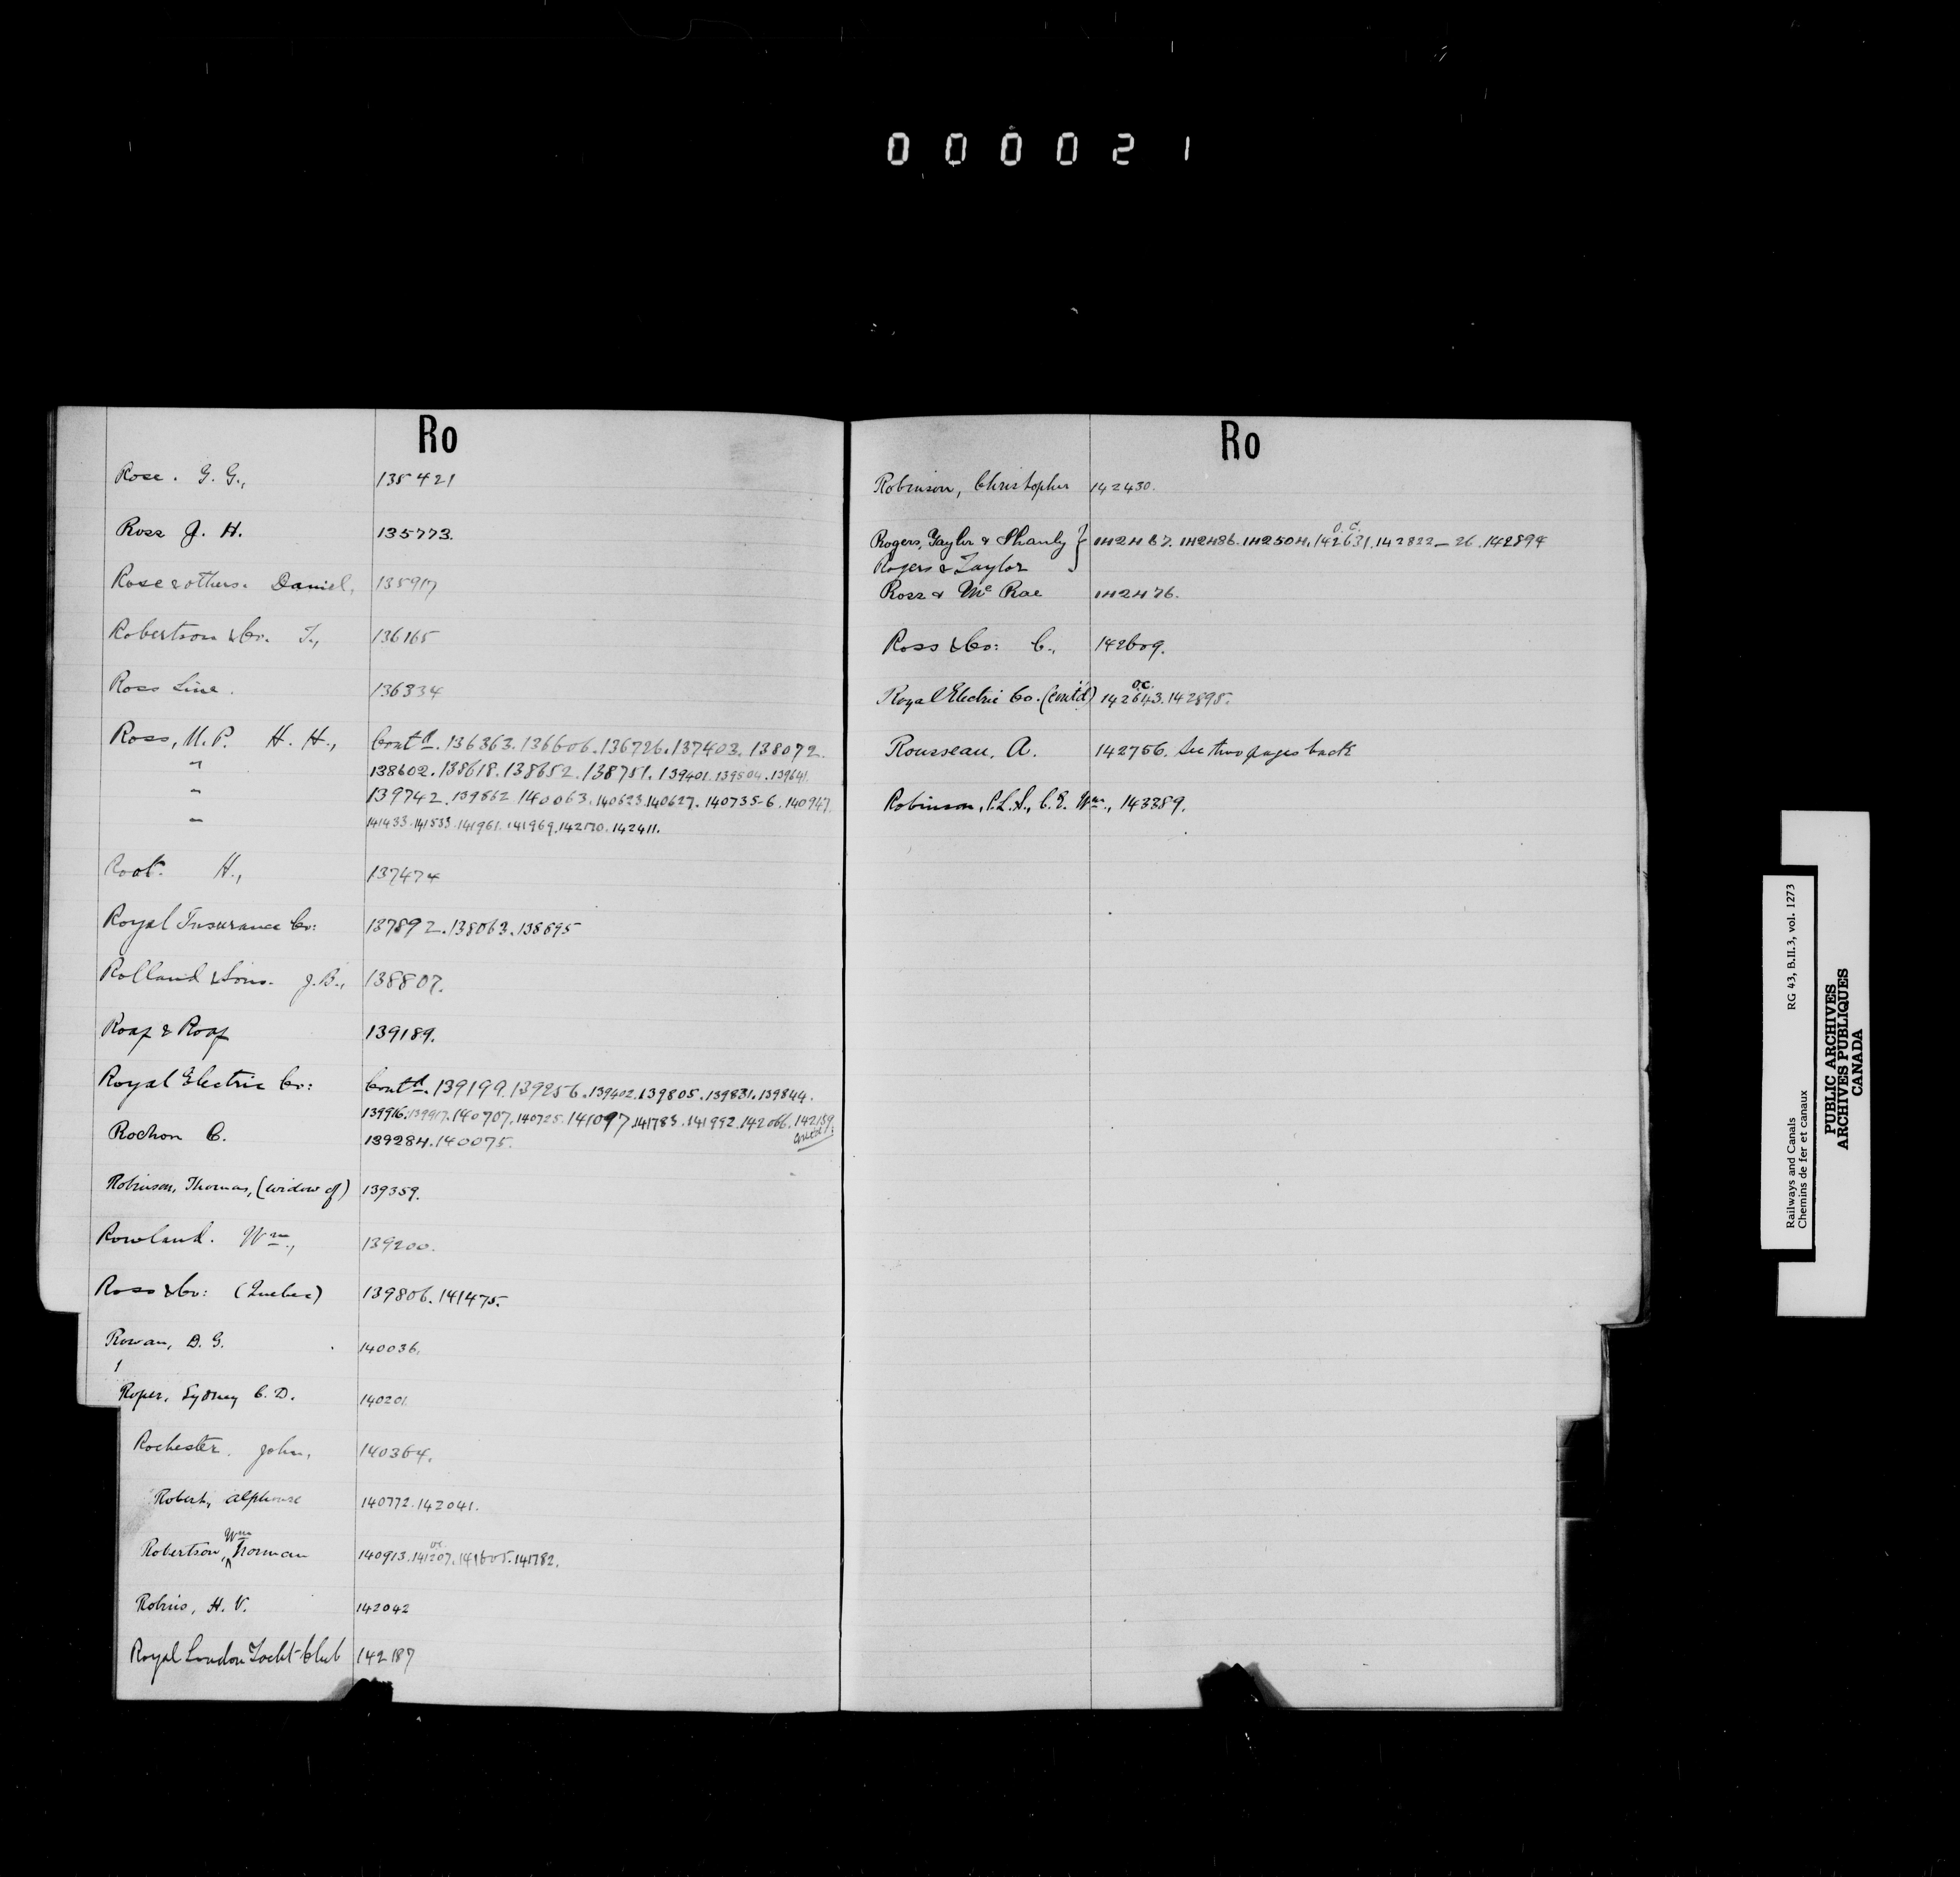 000021
Ro
Rose. G. G., 135421
Ross J. H. 135773.
Rose & others. Daniel, 135917
Robertson & Co. J., 136165
Ross Line. 136334
Ross, M.P. H. H., Contd. 136363.136606.136726.137403.138072.
" 138602.138618.138652.138751.139401.139504.139641.
" 139742.139862.140063.140623.140627.140735-6.140947.
" 141433.141533.141961.141969.142170.142411.
Root. H., 137474
Royal Insurance Co: 137892.138063.138695
Rolland & Sons. J.B., 138807.
Roaf & Roaf 139189.
Royal Electric Co: Contd. 139199.139256.139402.139805.139831.139844.
139916.139917.140707.140725.141097.141783.141992.142066.142159.
Contd:
Rochon C. 139284.140075.
Robinson, Thomas, (widow of) 139359.
Rowland. Wm., 139200.
Ross & Co: (Quebec) 139806.141475.
Rowan, D. G. 140036.
Roper, Sydney C. D. 140201.
Rochester. John, 140364.
Robert, Alphonse 140772.142041.
Robertson, Wm Norman 140913.141207.141605.141782.
Robins, H. V. 142042
Royal London Yacht-Club 142187
Ro
Robinson, Christopher 142430.
Rogers, Taylor & Shanly } 142467.142486.142504.142631.142822-26.142894
O.C.
Rogers & Taylor
Ross & McRae 142476.
Ross & Co: C., 142609.
O.C.
Royal Electric Co. (cont'd) 142643.142895.
Rousseau, A. 142756. See two pages back
Robinson, P.L.S., C.E. Wm., 143389.
Railways and Canals RG 43, B.II.3, vol. 1273
Chemins de fer et canaux
PUBLIC ARCHIVES
ARCHIVES PUBLIQUES
CANADA